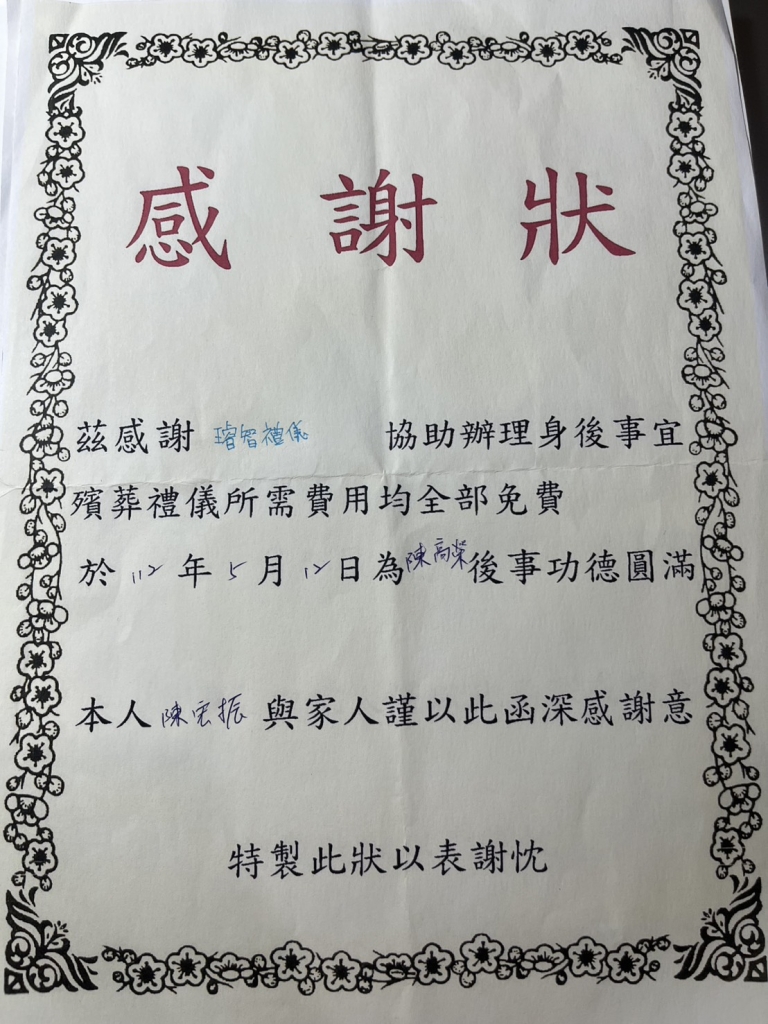 感謝狀
茲感謝 璿智禮儀 協助辦理身後事宜
殯葬禮儀所需費用均全部免費
於 112 年 5 月 12 日為陳高榮後事功德圓滿
本人 陳宏振 與家人謹以此函深感謝意
特製此狀以表謝忱